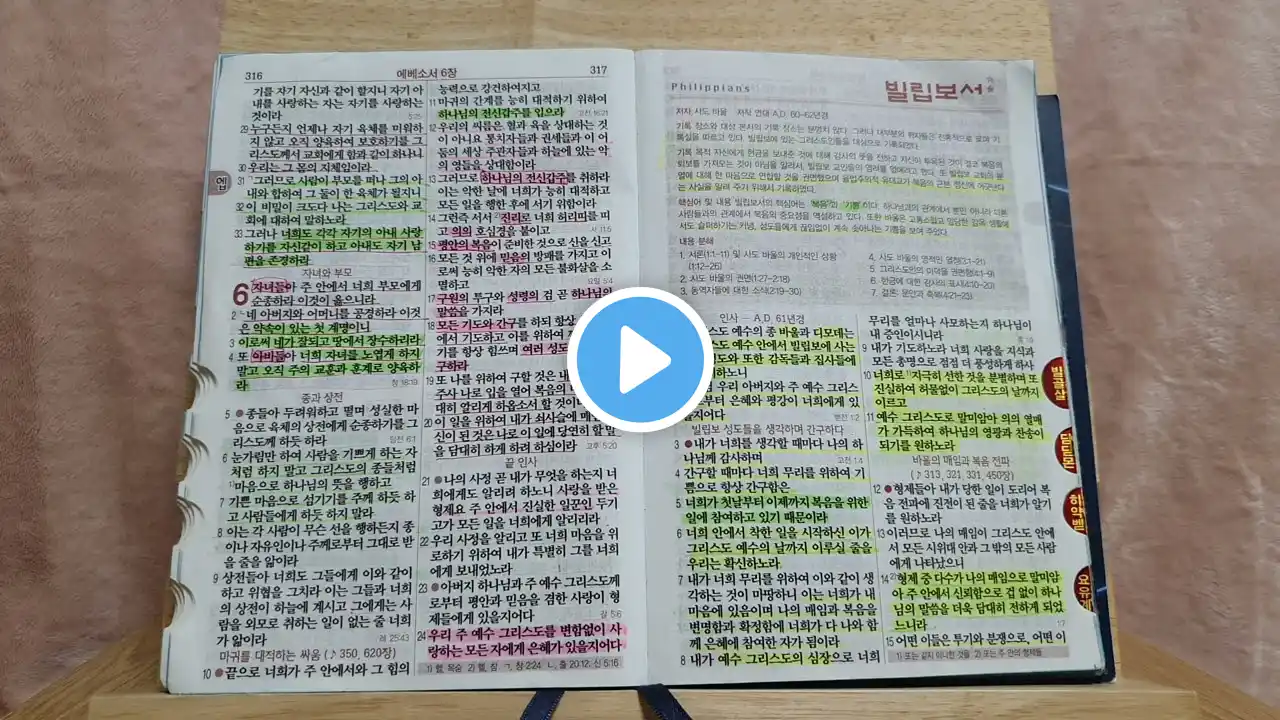 316
에베소서 6장
317
기를 자기 자신과 같이 할지니 자기 아
내를 사랑하는 자는 자기를 사랑하는
것이라
29 누구든지 언제나 자기 육체를 미워하
지 않고 오직 양육하여 보호하기를 그
리스도께서 교회에게 함과 같이 하나니
30 우리는 그 몸의 지체임이라
31 그러므로 사람이 부모를 떠나 그의 아
내와 합하여 그 둘이 한 육체가 될지니
32 이 비밀이 크도다 나는 그리스도와 교
회에 대하여 말하노라
33 그러나 너희도 각각 자기의 아내 사랑
하기를 자신같이 하고 아내도 자기 남
편을 존경하라
엡
자녀와 부모
6 자녀들아 주 안에서 너희 부모에게
순종하라 이것이 옳으니라
2 네 아버지와 어머니를 공경하라 이것
은 약속이 있는 첫 계명이니
3 이로써 네가 잘되고 땅에서 장수하리라
4 또 아비들아 너희 자녀를 노엽게 하지
말고 오직 주의 교훈과 훈계로 양육하
라
창 18:19
종과 상전
5 종들아 두려워하고 떨며 성실한 마
음으로 육체의 상전에게 순종하기를 그
리스도께 하듯 하라
딤전 6:1
6 눈가림만 하여 사람을 기쁘게 하는 자
처럼 하지 말고 그리스도의 종들처럼
마음으로 하나님의 뜻을 행하고
7 기쁜 마음으로 섬기기를 주께 하듯 하
고 사람들에게 하듯 하지 말라
8 이는 각 사람이 무슨 선을 행하든지 종
이나 자유인이나 주께로부터 그대로 받
을 줄을 앎이라
9 상전들아 너희도 그들에게 이와 같이
하고 위협을 그치라 이는 그들과 너희
의 상전이 하늘에 계시고 그에게는 사
람을 외모로 취하는 일이 없는 줄 너희
가 앎이라
레 25:43
마귀를 대적하는 싸움 (♪ 350, 620장)
10 끝으로 너희가 주 안에서와 그 힘의
능력으로 강건하여지고
11 마귀의 간계를 능히 대적하기 위하여
하나님의 전신갑주를 입으라
12 우리의 씨름은 혈과 육을 상대하는 것
이 아니요 통치자들과 권세들과 이 어
둠의 세상 주관자들과 하늘에 있는 악
의 영들을 상대함이라
13 그러므로 하나님의 전신갑주를 취하라
이는 악한 날에 너희가 능히 대적하고
모든 일을 행한 후에 서기 위함이라
14 그런즉 서서 진리로 너희 허리띠를 띠
고 의의 호심경을 붙이고
사 11:5
15 평안의 복음이 준비한 것으로 신을 신고
16 모든 것 위에 믿음의 방패를 가지고 이
로써 능히 악한 자의 모든 불화살을 소
멸하고
요일 5:4
17 구원의 투구와 성령의 검 곧 하나님의
말씀을 가지라
18 모든 기도와 간구를 하되 항상
에서 기도하고 이를 위하여
기를 항상 힘쓰며 여러 성도
구하라
19 또 나를 위하여 구할 것은 내
주사 나로 입을 열어 복음의
대히 알리게 하옵소서 할 것이
20 이 일을 위하여 내가 쇠사슬에 매인
신이 된 것은 나로 이 일에 당연히 할 말
을 담대히 하게 하려 하심이라
고후 5:20
끝 인사
21 나의 사정 곧 내가 무엇을 하는지 너
희에게도 알리려 하노니 사랑을 받은
형제요 주 안에서 진실한 일꾼인 두기
고가 모든 일을 너희에게 알리리라
22 우리 사정을 알리고 또 너희 마음을 위
로하기 위하여 내가 특별히 그를 너희
에게 보내었노라
23 아버지 하나님과 주 예수 그리스도께
로부터 평안과 믿음을 겸한 사랑이 형
제들에게 있을지어다
갈 5:6
24 우리 주 예수 그리스도를 변함없이 사
랑하는 모든 자에게 은혜가 있을지어다
Philippians
빌립보서
저자 사도 바울 저작 연대 A.D. 60-62년경
내용 분해
1. 서론(1:1-11) 및 사도 바울의 개인적인 상황
(1:12-26)
2. 사도 바울의 권면(1:27-2:18)
3. 동역자들에 대한 소식(2:19-30)
4. 사도 바울의 영적인 열정(3:1-21)
5. 그리스도인의 미덕을 권면함(4:1-9)
6. 헌금에 대한 감사의 표시(4:10-20)
7. 결론: 문안과 축복(4:21-23)
인사 — A.D. 61년경
스도 예수의 종 바울과 디모데는
스도 예수 안에서 빌립보에 사는
도와 또한 감독들과 집사들에
하노니
우리 아버지와 주 예수 그리스
부터 은혜와 평강이 너희에게 있
지어다
벧전 1:2
빌립보 성도들을 생각하며 간구하다
3 내가 너희를 생각할 때마다 나의 하
나님께 감사하며
고전 1:4
4 간구할 때마다 너희 무리를 위하여 기
쁨으로 항상 간구함은
5 너희가 첫날부터 이제까지 복음을 위한
일에 참여하고 있기 때문이라
6 너희 안에서 착한 일을 시작하신 이가
그리스도 예수의 날까지 이루실 줄을
우리는 확신하노라
7 내가 너희 무리를 위하여 이와 같이 생
각하는 것이 마땅하니 이는 너희가 내
마음에 있음이며 나의 매임과 복음을
변명함과 확정함에 너희가 다 나와 함
께 은혜에 참여한 자가 됨이라
8 내가 예수 그리스도의 심장으로 너희
무리를 얼마나 사모하는지 하나님이
내 증인이시니라
9 내가 기도하노라 너희 사랑을 지식과
모든 총명으로 점점 더 풍성하게 하사
10 너희로 지극히 선한 것을 분별하며 또
진실하여 허물없이 그리스도의 날까지
이르고
11 예수 그리스도로 말미암아 의의 열매
가 가득하여 하나님의 영광과 찬송이
되기를 원하노라
바울의 매임과 복음 전파
(♪ 313, 321, 331, 450장)
12 형제들아 내가 당한 일이 도리어 복
음 전파에 진전이 된 줄을 너희가 알기
를 원하노라
13 이러므로 나의 매임이 그리스도 안에
서 모든 시위대 안과 그 밖의 모든 사람
에게 나타났으니
14 형제 중 다수가 나의 매임으로 말미암
아 주 안에서 신뢰함으로 겁 없이 하나
님의 말씀을 더욱 담대히 전하게 되었
느니라
15 어떤 이들은 투기와 분쟁으로, 어떤 이
빌골살
히약벧
요유계